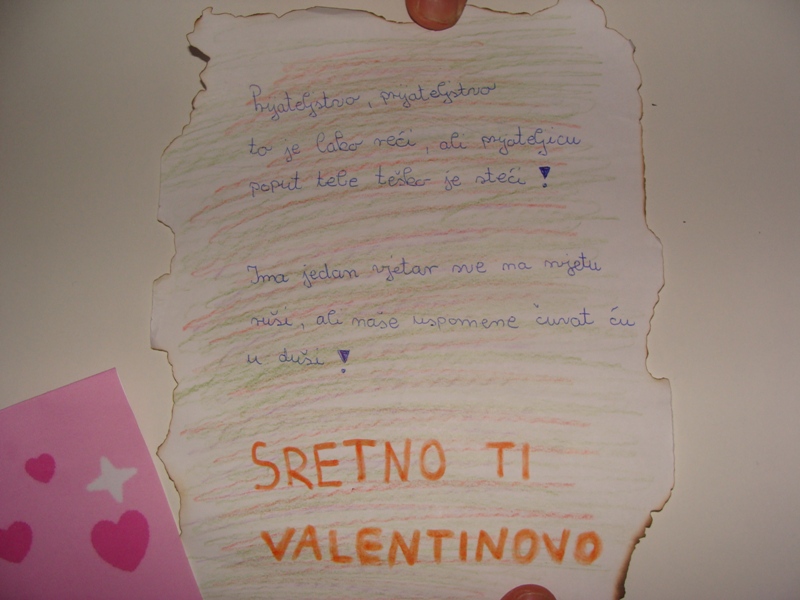 Prijateljstvo, prijateljstvo
to je lako reći, ali prijateljicu
poput tebe teško je steći!
Ima jedan vjetar sve na svijetu
ruši, ali naše uspomene čuvat ću
u duši!
SRETNO TI
VALENTINOVO